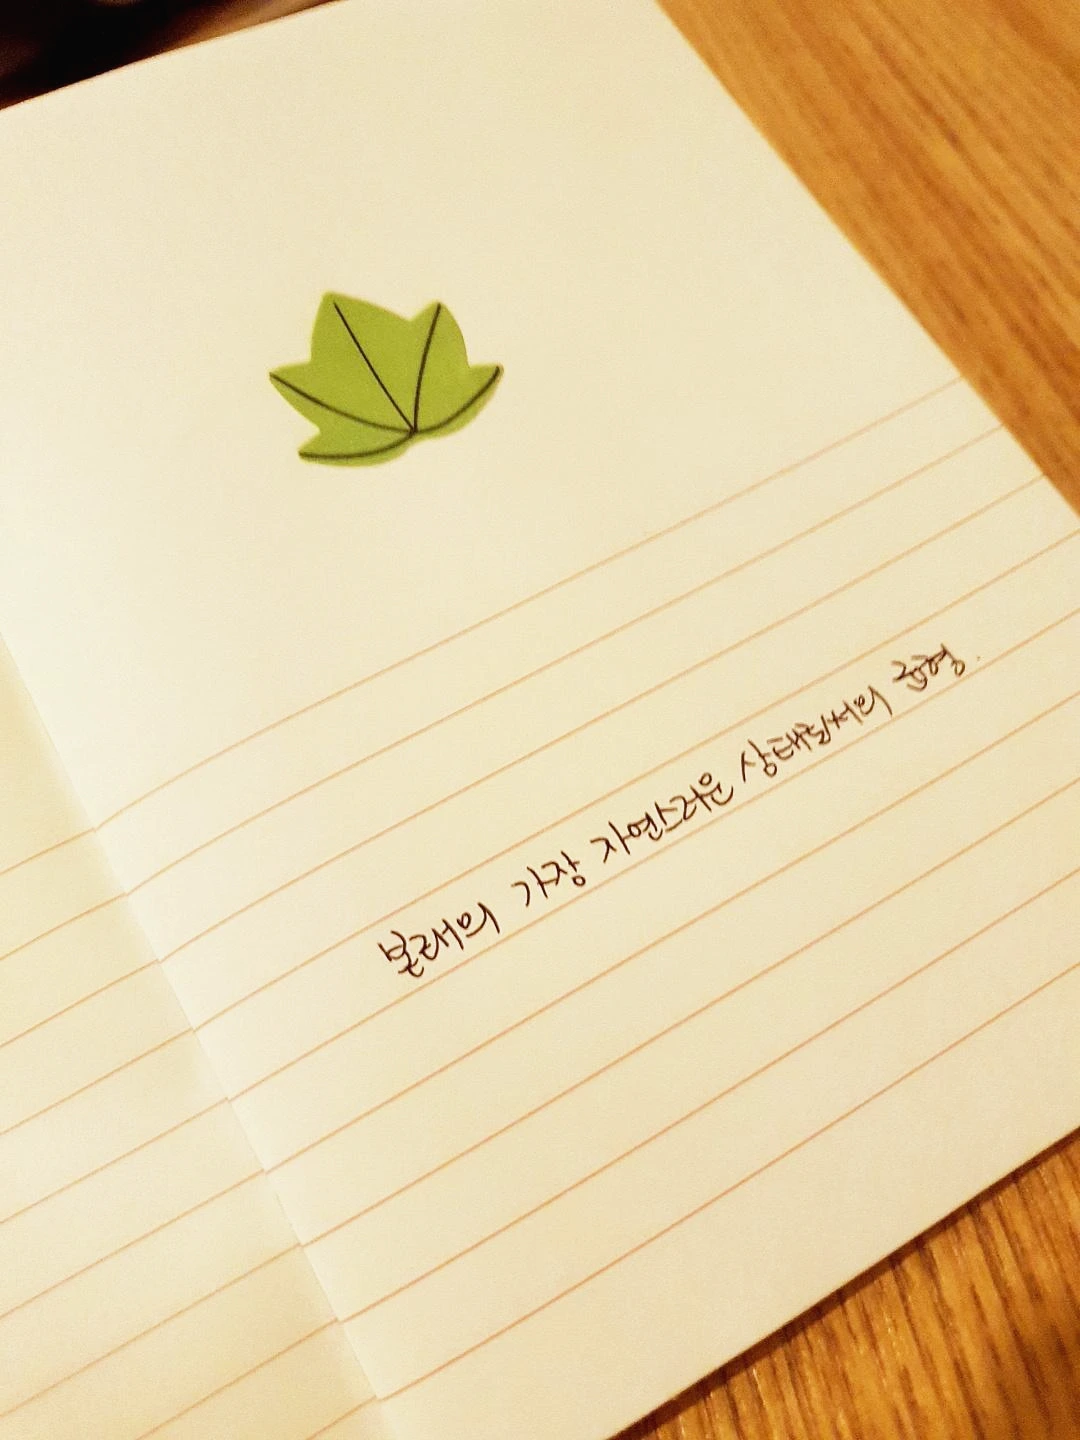 본래의 가장 자연스러운 상태로서의 균형.